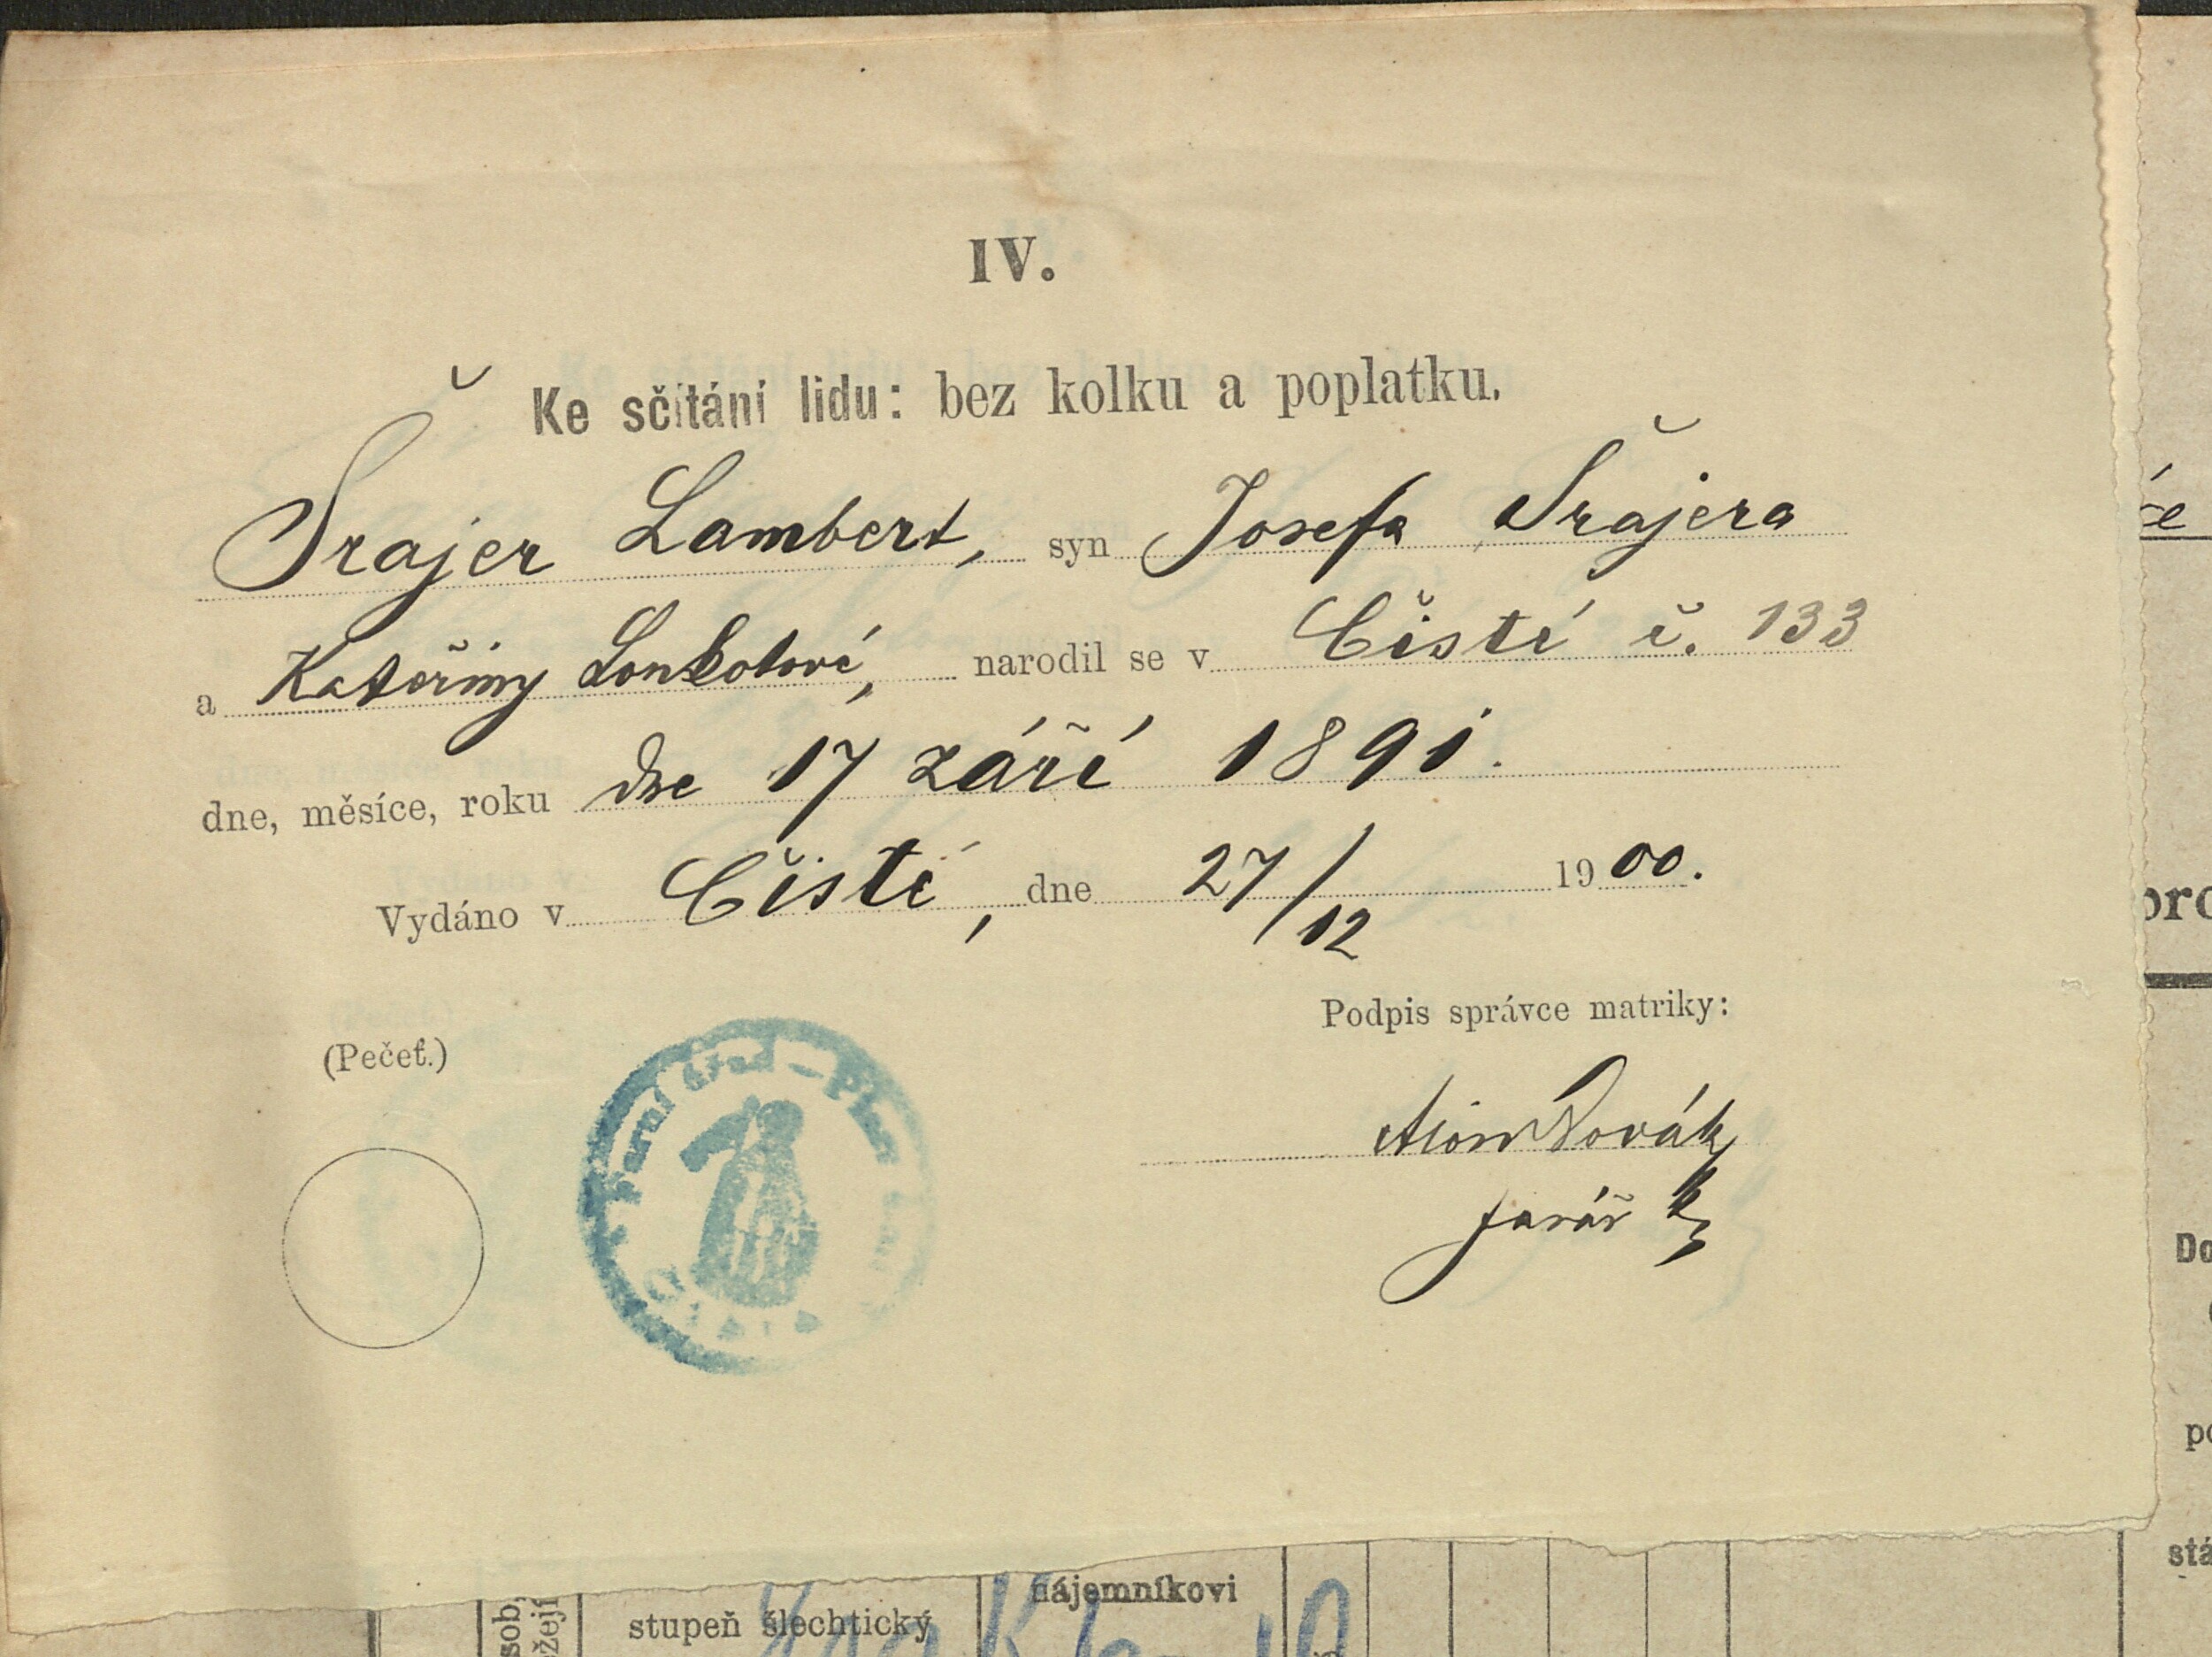 IV.
Ke sčítání lidu: bez kolku a poplatku.
Šrajer Lambert, syn Josefa Šrajera
a Kateřiny, narodil se v Čisté č. 133
dne, měsíce, roku dne 17 září 1891.
Vydáno v Čisté, dne 27/12 1900.
Podpis správce matriky:
(Pečeť.)
Farní úřad
Čistá
Novák
farář
stupeň šlechtický
nájemníkovi